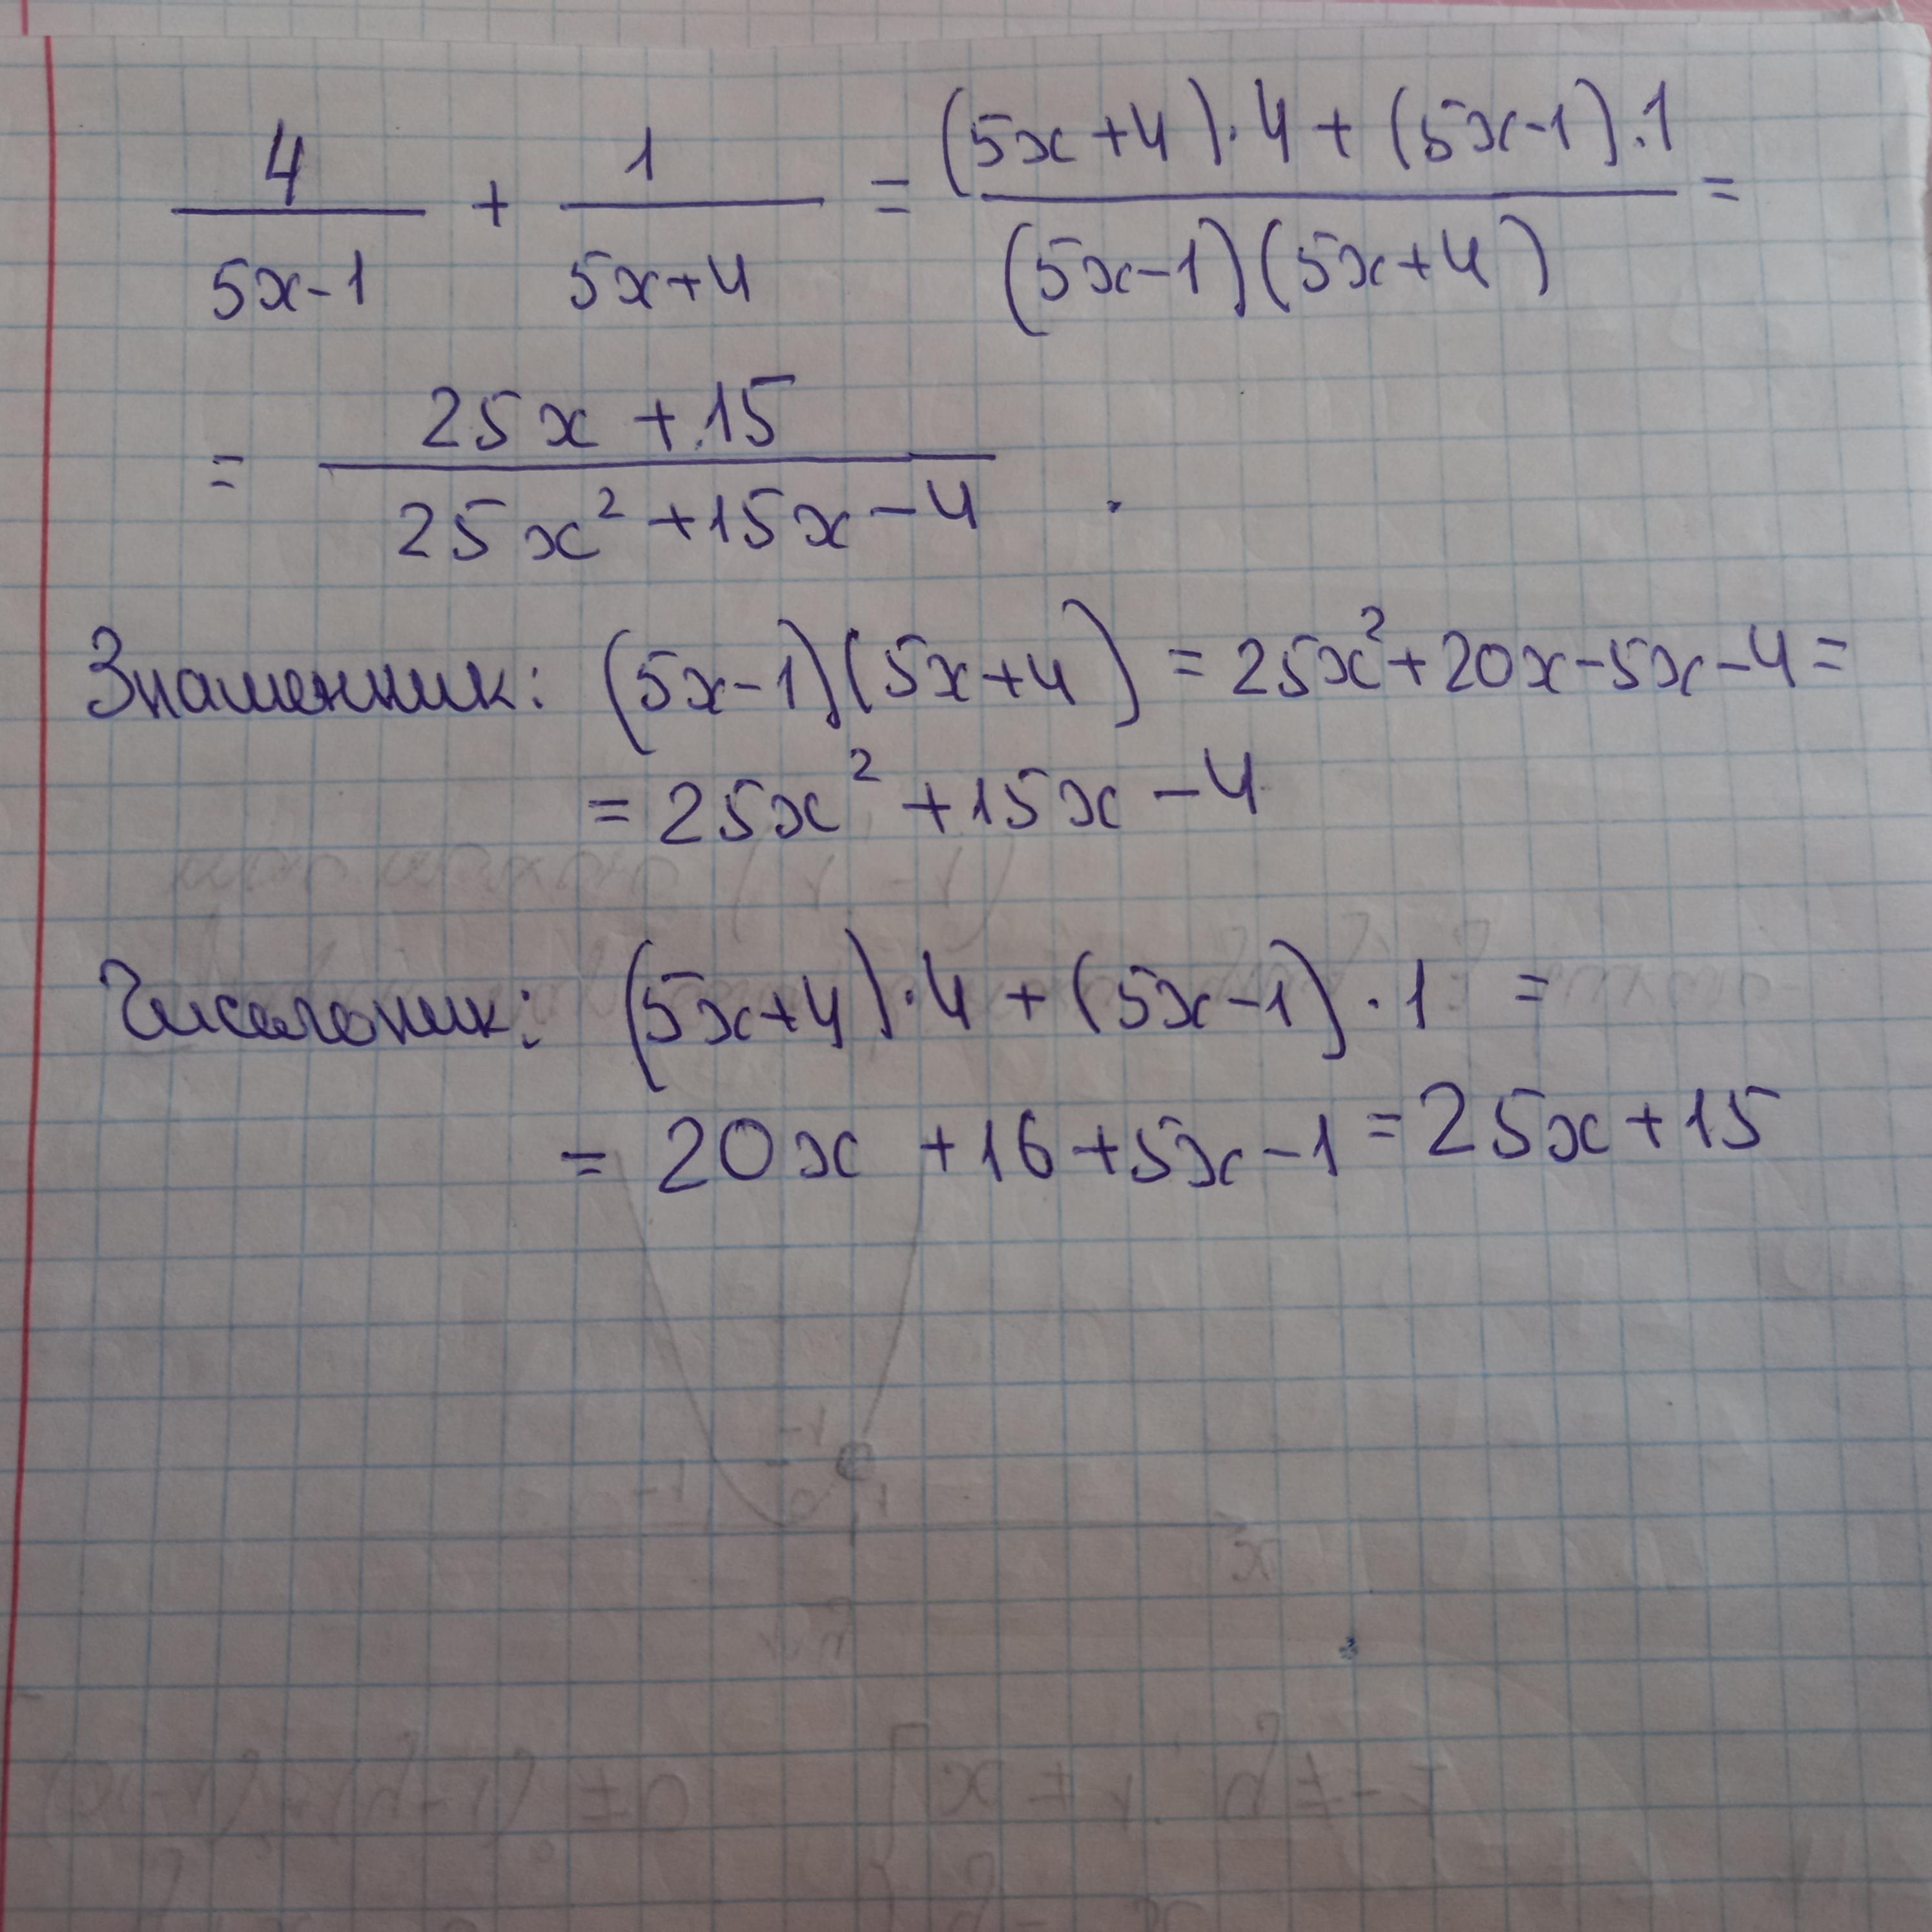 4/(5x-1) + 1/(5x+4) = ((5x+4)·4+(5x-1)·1)/((5x-1)(5x+4)) =
= (25x+15)/(25x²+15x-4).
Знаменник: (5x-1)(5x+4) = 25x²+20x-5x-4=
= 25x²+15x-4
Чисельник: (5x+4)·4+(5x-1)·1 =
= 20x+16+5x-1=25x+15